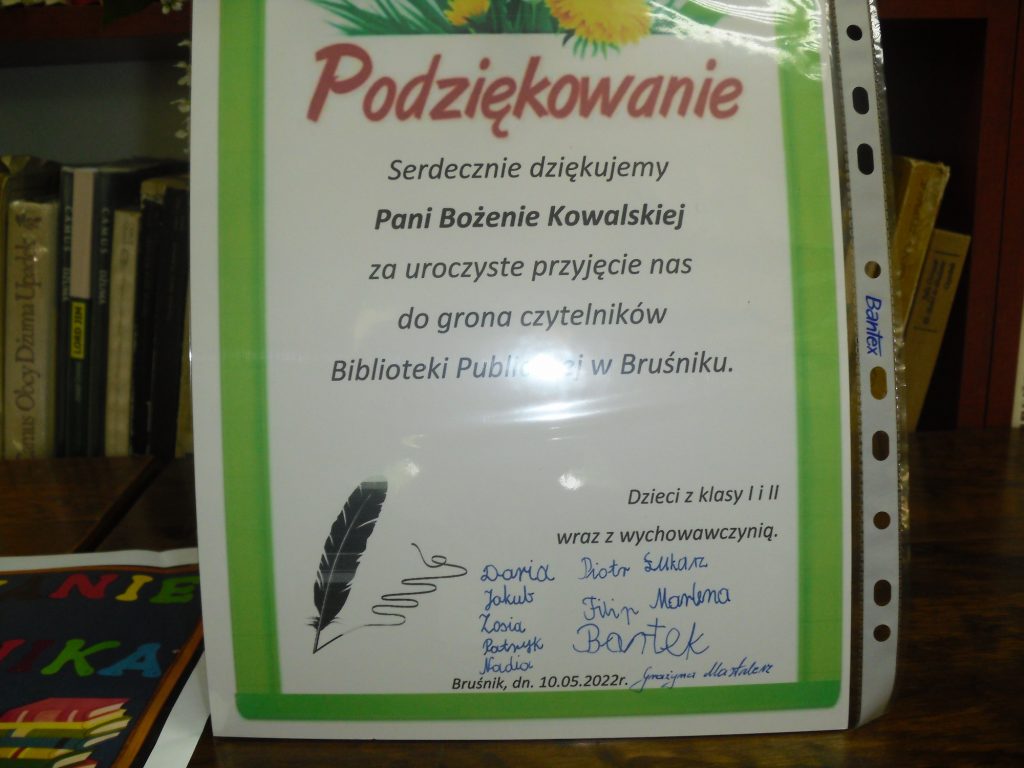 Podziękowanie
Serdecznie dziękujemy
Pani Bożenie Kowalskiej
za uroczyste przyjęcie nas
do grona czytelników
Biblioteki Publicznej w Bruśniku.
Dzieci z klasy I i II
wraz z wychowawczynią.
Daria Piotr Łukasz
Jakub Filip Marlena
Zosia Bartek
Patryk
Nadia
Bruśnik, dn. 10.05.2022r. Grażyna
Bantex
Obcy Dżuma Upadek
CAMUS DŻUMA
LORD JIM
NIE
NIKA